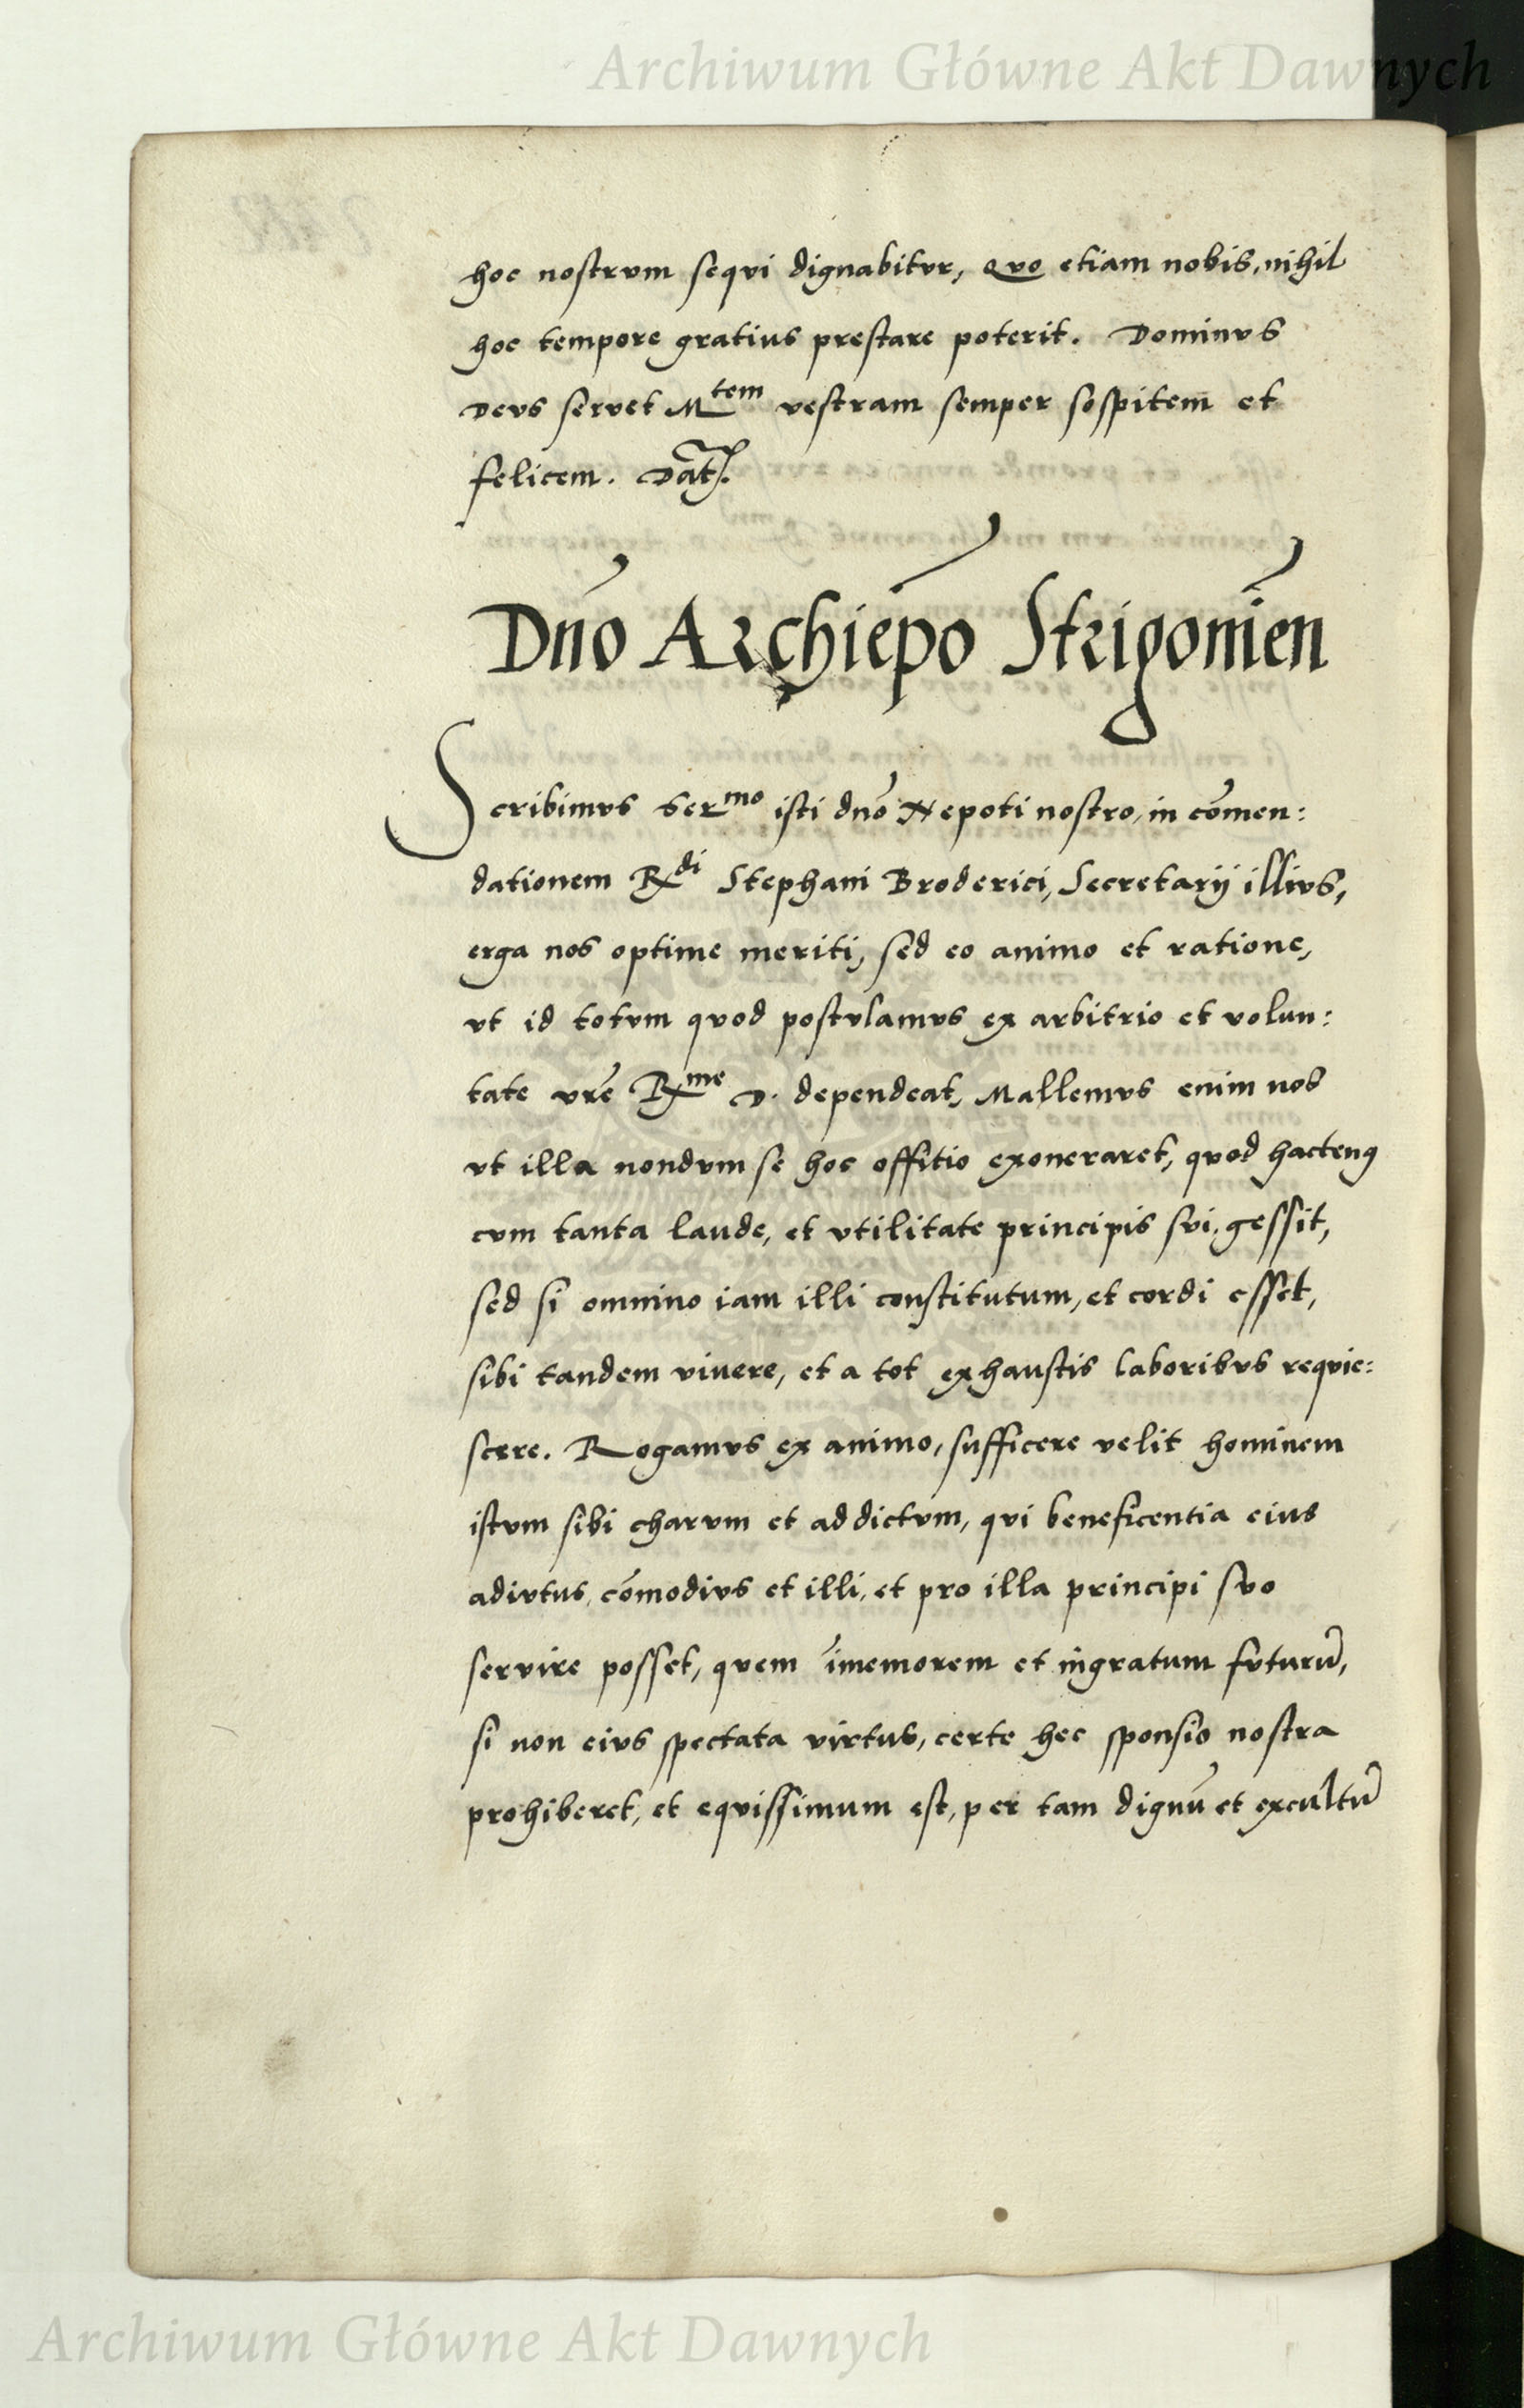 Archiwum Główne Akt Dawnych
hoc nostrvm seqvi dignabitvr, Qvo etiam nobis, nihil
hoc tempore gratius prestare poterit. Dominvs
Devs servet M^tem vestram semper sospitem et
felicem. Dat.
Dño Archiepo Strigonien̄
Scribimvs Ser^mo isti dño Nepoti nostro, in cōmen:
dationem R^di Stephani Broderici, Secretarij illivs,
erga nos optime meriti, sed eo animo et ratione,
vt id totvm qvod postvlamvs ex arbitrio et volun:
tate vrē R^me D. dependeat, Mallemvs enim nos
vt illa nondvm se hoc offitio exoneraret, qvod hactenꝰ
cvm tanta laude, et vtilitate principis svi gessit,
sed si omnino iam illi constitutum, et cordi esset,
sibi tandem vivere, et a tot exhaustis laboribvs reqvie:
scere. Rogamvs ex animo, sufficere velit hominem
istvm sibi charvm et addictvm, qvi beneficentia eius
adivtus, cōmodivs et illi, et pro illa principi svo
servire posset, qvem īmemorem et ingratum fvturū,
si non eivs spectata virtus, certe hec sponsio nostra
prohiberet, et eqvissimum est, per tam dignū et excultū
Archiwum Główne Akt Dawnych